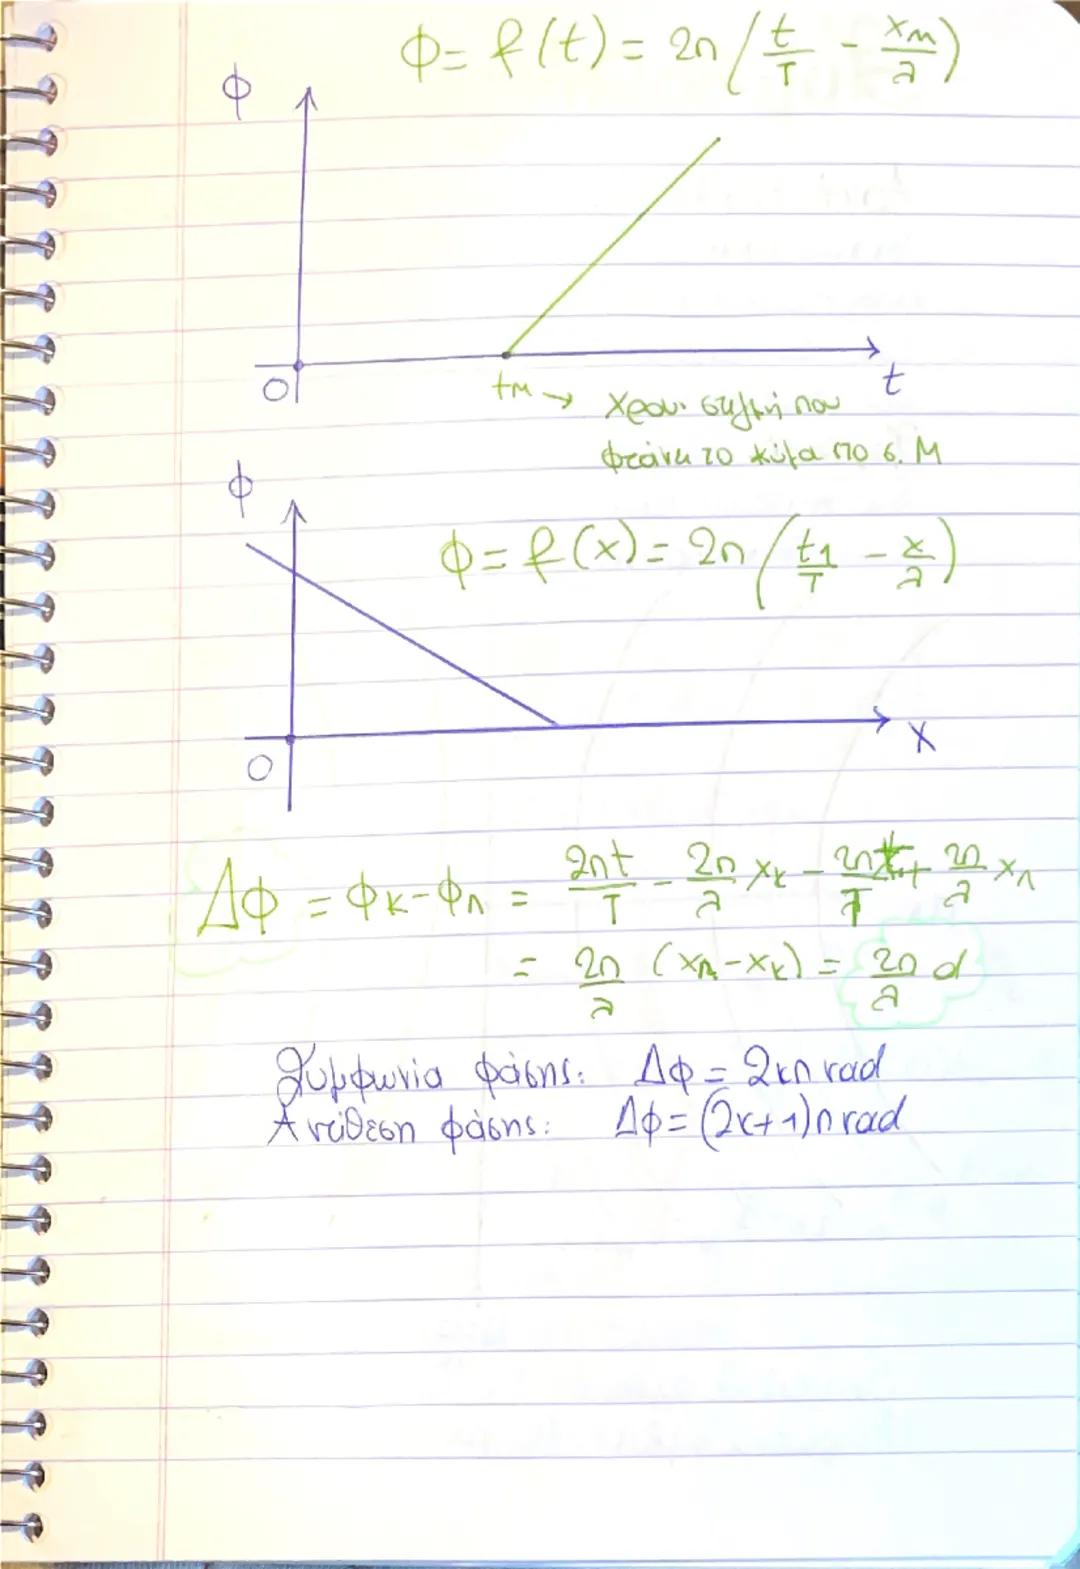 Φ = f(t) = 2π (t/T - xм/λ)
Φ
O
tм → Χρον. στιγμή που
t
φτάνει το κύμα στο σ. Μ
Φ
Φ = f(x) = 2π (t1/T - x/λ)
O
x
ΔΦ = Φκ-ΦΛ = 2πt/T - 2π/λ xκ - 2πt/T + 2π/λ xΛ
= 2π/λ (xΛ-xκ) = 2π/λ d
Συμφωνία φάσης: Δφ = 2κπ rad
Αντίθεση φάσης: Δφ = (2κ+1)π rad